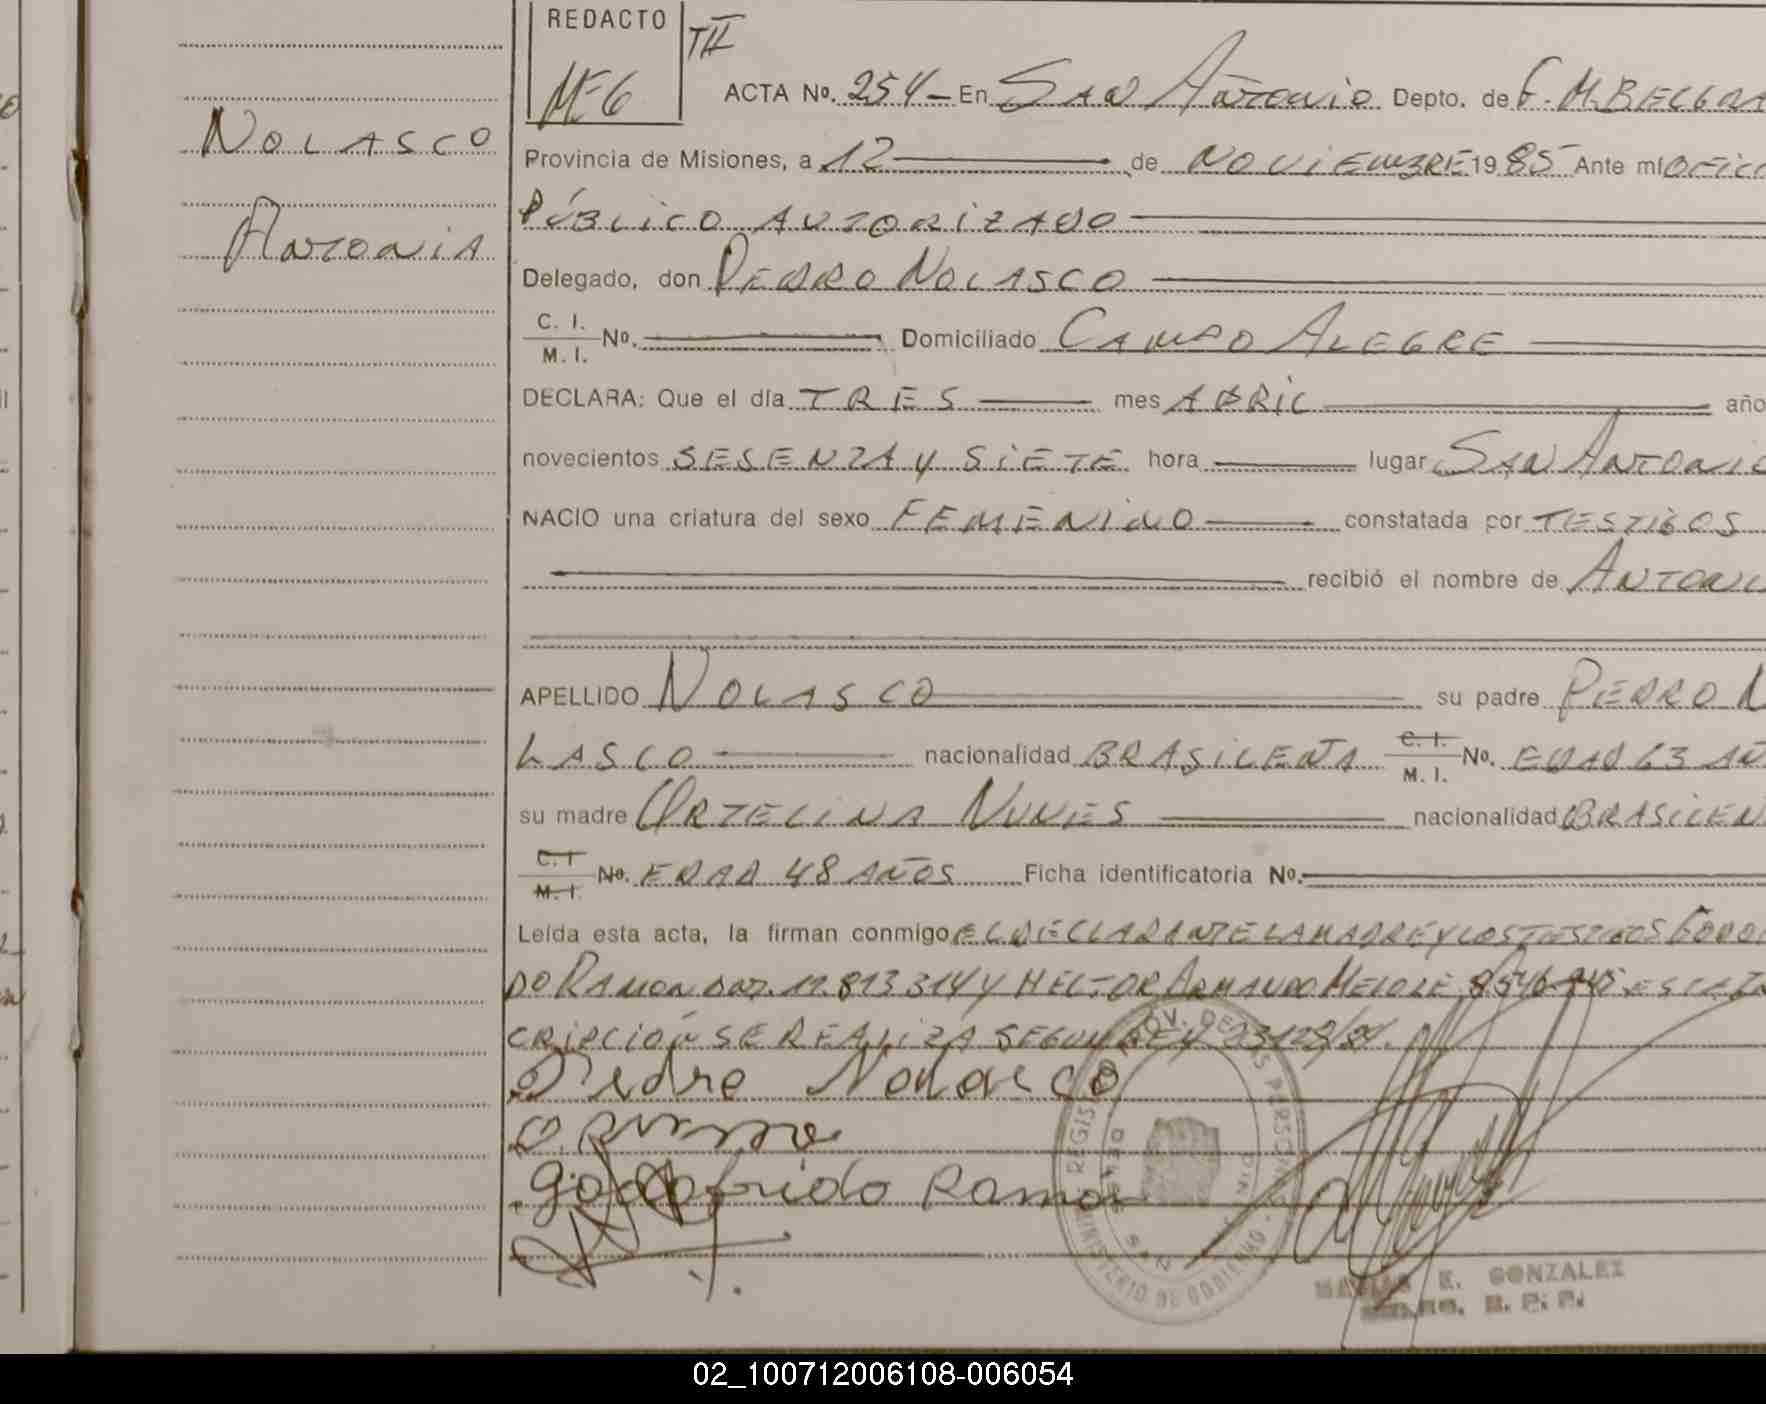 REDACTO
TII
M-6
NOLASCO
ANTONIA
ACTA No. 254 - En SAN ANTONIO Depto. de G. M. BELGRA
Provincia de Misiones, a 12 de NOVIEMBRE 1985 Ante mí OFICI
PÚBLICO AUTORIZADO
Delegado, don PEDRO NOLASCO
C. I.
M. I. No. Domiciliado CAMPO ALEGRE
DECLARA: Que el día TRES mes ABRIL año
novecientos SESENTA Y SIETE hora lugar SAN ANTONIO
NACIO una criatura del sexo FEMENINO constatada por TESTIGOS
recibió el nombre de ANTONI
APELLIDO NOLASCO su padre PEDRO N
LASCO nacionalidad BRASILEÑA C. I. M. I. No. EDAD 63 AÑ
su madre ORTELINA NUNES nacionalidad BRASILEÑ
C. I. M. I. No. EDAD 48 AÑOS Ficha identificatoria No.
Leída esta acta, la firman conmigo EL DECLARANTE LA MADRE Y LOS TESTIGOS
DO RAMON 11.813314 Y HECTOR ARMANDO
CRIPCIÓN SE REALIZA SEGUN LEY 23128/84.
Pedro Nolasco
Godofrido Ramon
REGIS PROV. DE LAS PERSONAS
MINISTERIO DE GOBIERNO
E. GONZALEZ
02_100712006108-006054